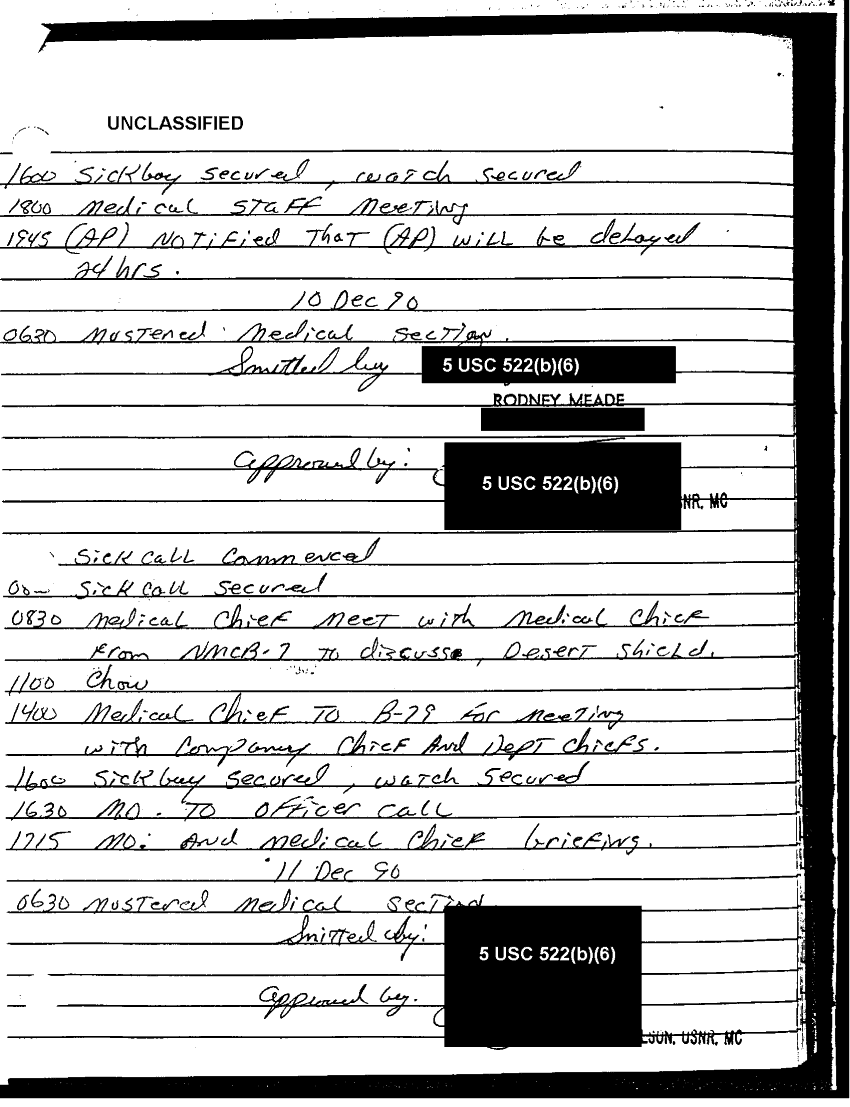 UNCLASSIFIED
1600 Sickbay Secured, watch Secured
1800 Medical STAFF Meeting
1945 (AP) NOTiFied ThaT (AP) will be delayed
24 hrs.
10 Dec 90
0630 Mustered Medical Section.
Smitted by 5 USC 522(b)(6)
RODNEY MEADE
Approved by: 5 USC 522(b)(6)
NR, MC
Sick Call Commenced
Sick Call Secured
0830 Medical Chief Meet with Medical Chief
From NMCB-7 To discusse, Desert Shield.
1100 Chow
1400 Medical Chief To B-79 For Meeting
with Company Chief And Dept Chiefs.
1600 Sickbay Secured, watch Secured
1630 MO. To Officer Call
1715 MO: And Medical Chief briefing.
11 Dec 90
0630 Mustered Medical Section
Smitted by: 5 USC 522(b)(6)
Approved by.
LSON, USNR, MC